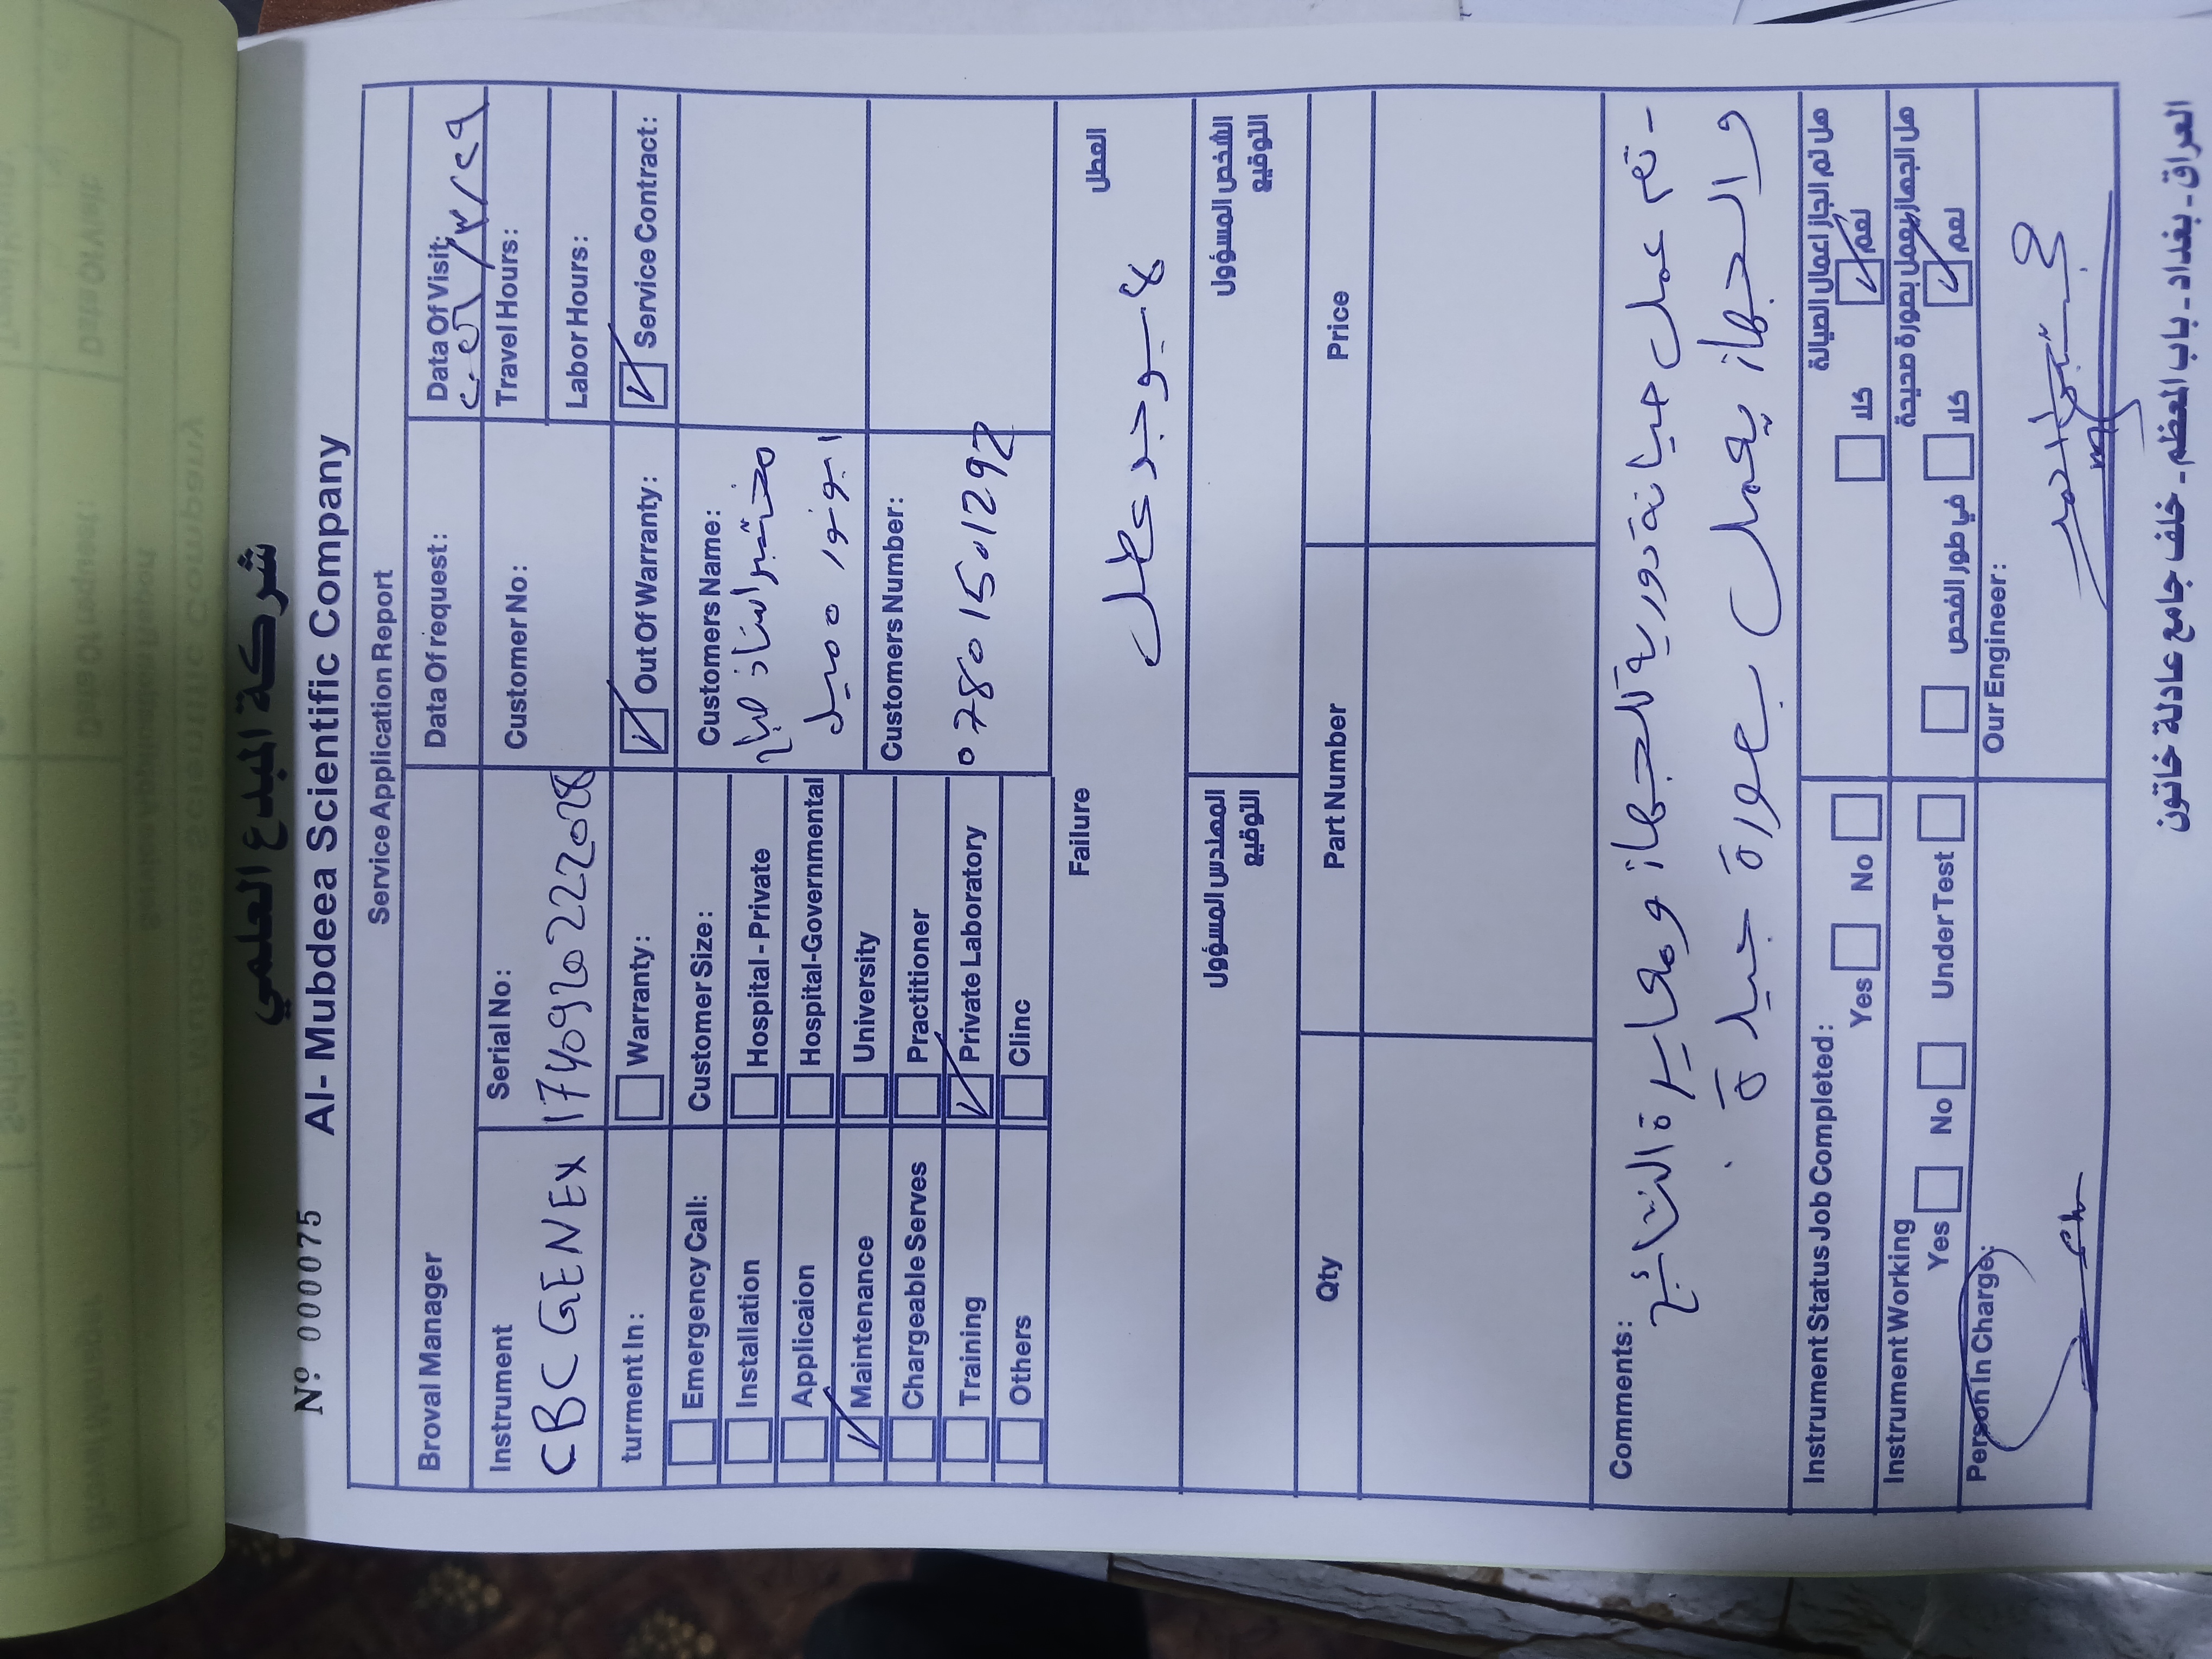 شركة المبدع العلمي
Nº 000075 Al- Mubdeea Scientific Company
Service Application Report
Broval Manager
Data Of request:
Data Of Visit:
٢٠٢٥/٣/٢٩
Instrument
CBC GENEX
Serial No:
Customer No:
Travel Hours:
Labor Hours:
turment In:
Warranty:
Out Of Warranty:
Service Contract:
Emergency Call:
Installation
Applicaion
Maintenance
Chargeable Serves
Training
Others
Customer Size:
Hospital - Private
Hospital-Governmental
University
Practitioner
Private Laboratory
Clinc
Customers Name:
مختبر استاذ صباح
Customers Number:
07801501292
Failure
العطل
لا يوجد عطل
المهندس المسؤول
التوقيع
الشخص المسؤول
التوقيع
Qty
Part Number
Price
Comments:
- تم عمل صيانة دورية للجهاز ومعايرة النتائج
والجهاز يعمل بصورة جيدة .
Instrument Status Job Completed :
Yes
No
هل تم انجاز اعمال الصيانة
كلا
نعم
Instrument Working
Yes
No
Under Test
هل الجهاز يعمل بصورة صحيحة
في طور الفحص
كلا
نعم
Person In Charge:
Our Engineer:
العراق - بغداد - باب المعظم - خلف جامع عادلة خاتون